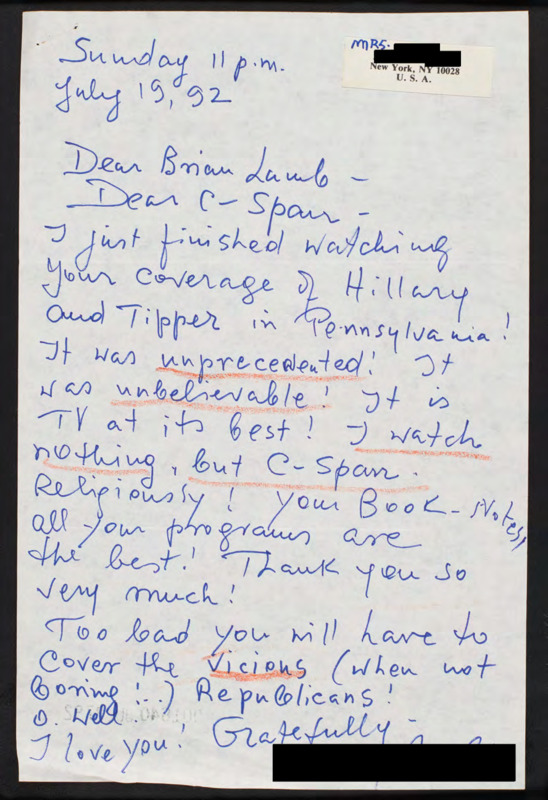 MRS.
New York, NY 10028
U. S. A.
Sunday 11 p.m.
July 19, 92
Dear Brian Lamb -
Dear C-Span -
I just finished watching
your coverage of Hillary
and Tipper in Pennsylvania!
It was unprecedented! It
was unbelievable! It is
TV at its best! I watch
nothing, but C-Span.
Religiously! Your Book-Notes,
all your programs are
the best! Thank you so
very much!
Too bad you will have to
cover the vicious (when not
boring!..) Republicans!
O. Well.
I love you! Gratefully -